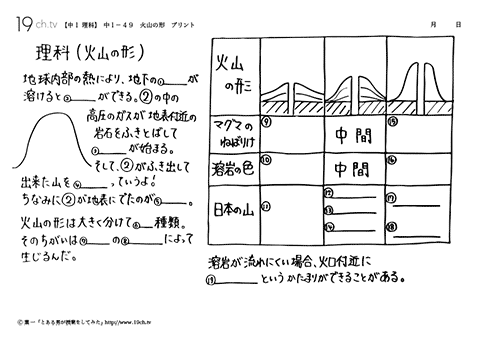 19ch.tv 【中1 理科】 中1-49 火山の形 プリント
月 日
理科(火山の形)
地球内部の熱により、地下の①____が
溶けると②____ができる。②の中の
高圧のガスが地表付近の
岩石をふきとばして
③____が始まる。
そして、②がふき出して
出来た山を④____っていうよ!
ちなみに②が地表にでたのが⑤____。
火山の形は大きく分けて⑥__種類。
そのちがいは⑦____の⑧____によって
生じるんだ。
火山の形
マグマのねばりけ ⑨ 中間 ⑮
溶岩の色 ⑩ 中間 ⑯
日本の山 ⑪ ⑫ ⑬ ⑭ ⑰ ⑱
溶岩が流れにくい場合、火口付近に
⑲________というかたまりができることがある。
© 葉一「とある男が授業をしてみた」http://www.19ch.tv